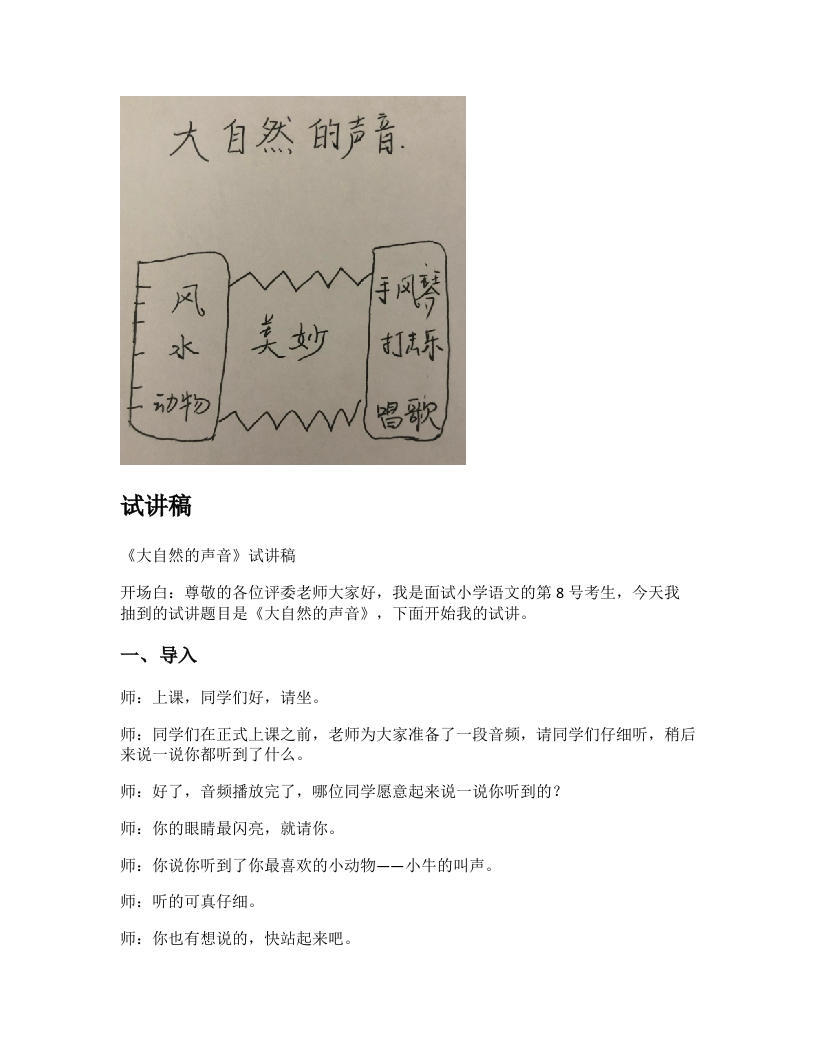 大自然的声音.
风
水
动物
美妙
手风琴
打击乐
唱歌
试讲稿
《大自然的声音》试讲稿
开场白：尊敬的各位评委老师大家好，我是面试小学语文的第 8 号考生，今天我
抽到的试讲题目是《大自然的声音》，下面开始我的试讲。
一、导入
师：上课，同学们好，请坐。
师：同学们在正式上课之前，老师为大家准备了一段音频，请同学们仔细听，稍后
来说一说你都听到了什么。
师：好了，音频播放完了，哪位同学愿意起来说一说你听到的？
师：你的眼睛最闪亮，就请你。
师：你说你听到了你最喜欢的小动物——小牛的叫声。
师：听的可真仔细。
师：你也有想说的，快站起来吧。